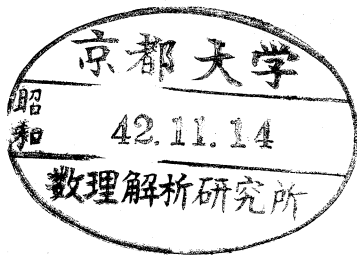 京都大学
昭和
42.11.14
数理解析研究所